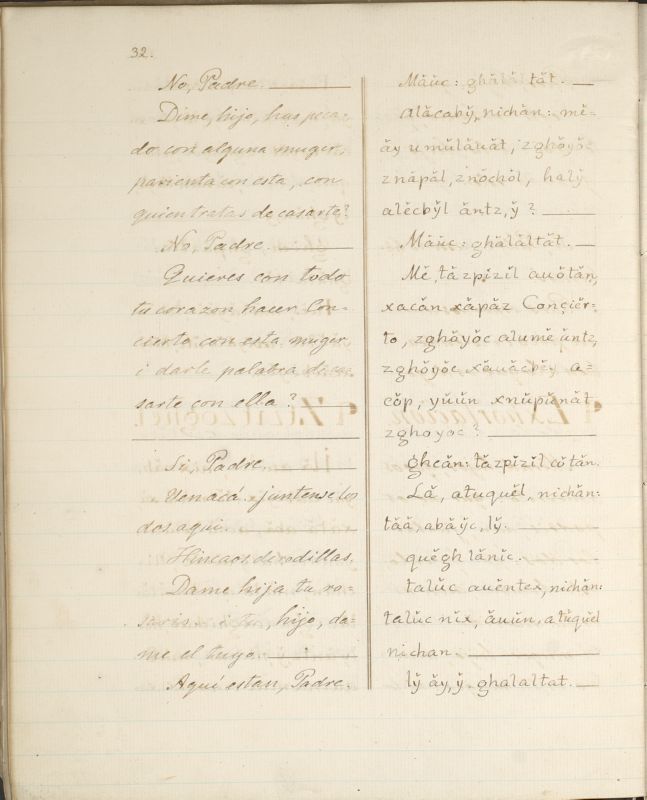 32.
No, Padre.
Dime, hijo, has peca-
do con alguna muger,
parienta con esta, con
quien tratas de casarte?
No, Padre.
Quieres con todo
tu corazon hacer Con-
cierto con esta muger,
i darle palabra de ca-
sarte con ella?
Si, Padre.
Ven acá, juntense los
dos aqui.
Hincaos de rodillas.
Dame hija tu ro-
sario. i tu, hijo, da-
me el tuyo.
Aquí estan, Padre.
Măŭc: ghălăltăt.
alăcabў, nichăn: mĭ-
ăy u mŭlăvăt, zghŏyŏc
znăpăl, znŏchŏl, halў
alĕcbўl ăntz, ў?
Măŭc: ghălăltăt.
Mĕ, tăzpĭzĭl avŏtăn,
xacăn xăpăz Conçiĕr-
to, zghŏyŏc alumĕ ăntz,
zghŏyŏc xăvăcbĕy a-
cŏp, yŭŭn xnŭpŭnăt
zghoyoc?
ghcăn: tăzpĭzĭl cŏtăn.
Lă, atuquĕl, nichăn:
tăă, abăўc, lў.
quĕgh lănĭc.
talŭc avĕntex, nichăn:
talŭc nĭx, ăvŭn, atŭquĕl
nichan.
lў ăy, ў. ghalaltat.